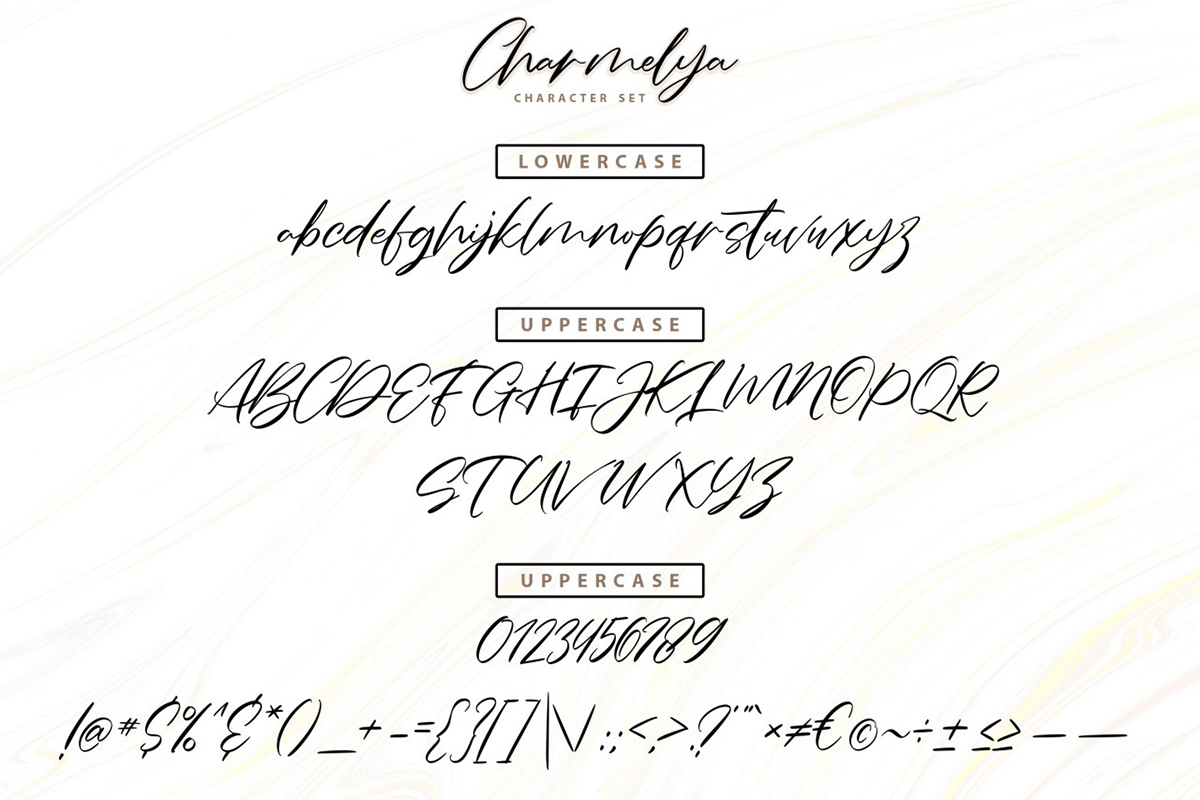 Charmelya
CHARACTER SET
LOWERCASE
abcdefghijklmnopqrstuvwxyz
UPPERCASE
ABCDEFGHIJKLMNOPQR
STUVWXYZ
UPPERCASE
0123456789
!@#$%^&*()_+-={}[]|\/:;<,>.?'"'"`×≠€©~÷±≤≥–—